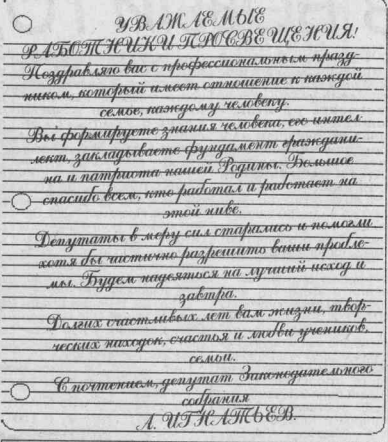 УВАЖАЕМЫЕ
РАБОТНИКИ ПРОСВЕЩЕНИЯ!
Поздравляю вас с профессиональным празд-
ником, который имеет отношение к каждой
семье, каждому человеку.
Вы формируете знания человека, его интел-
лект, закладываете фундамент граждани-
на и патриота нашей Родины. Большое
спасибо всем, кто работал и работает на
этой ниве.
Депутаты в меру сил старались и помогли
хотя бы частично разрешить ваши пробле-
мы. Будем надеяться на лучший исход и
завтра.
Долгих счастливых лет вам жизни, твор-
ческих находок, счастья и любви учеников,
семьи.
С почтением, депутат Законодательного
собрания
А. ИГНАТЬЕВ.